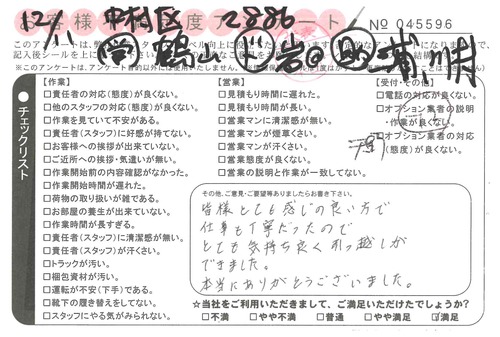 12/1 中村区 2886
お客様満足度アンケート
No 045596
チェックリスト
【作業】
□責任者の対応(態度)が良くない。
□他のスタッフの対応(態度)が良くない。
□作業を見ていて不安がある。
□責任者(スタッフ)に好感が持てない。
□お客様への挨拶が出来ていない。
□ご近所への挨拶・気遣いが無い。
□作業開始前の内容確認がなかった。
□作業開始時間が遅れた。
□荷物の取り扱いが雑である。
□お部屋の養生が出来ていない。
□作業時間が長すぎる。
□責任者(スタッフ)に清潔感が無い。
□責任者(スタッフ)が汗くさい。
□トラックが汚い。
□梱包資材が汚い。
□運転が不安(下手)である。
□靴下の履き替えをしてない。
□スタッフにやる気がみられない。
【営業】
□見積もり時間に遅れた。
□見積もり時間が長い。
□営業マンに清潔感が無い。
□営業マンが煙草くさい。
□営業マンが汗くさい。
□営業態度が良くない。
□営業の説明と作業が一致してない。
【受付・その他】
□電話の対応が良くない。
□オプション業者の説明
・作業が良くない。
□オプション業者の対応
(態度)が良くない。
その他、ご意見・ご要望等ありましたらお書き下さい。
皆様とても感じの良い方で
仕事も丁寧だったので
とても気持ち良く引っ越しが
できました。
本当にありがとうございました。
☆当社をご利用いただきまして、ご満足いただけたでしょうか?
□不満 □やや不満 □普通 □やや満足 ☑満足